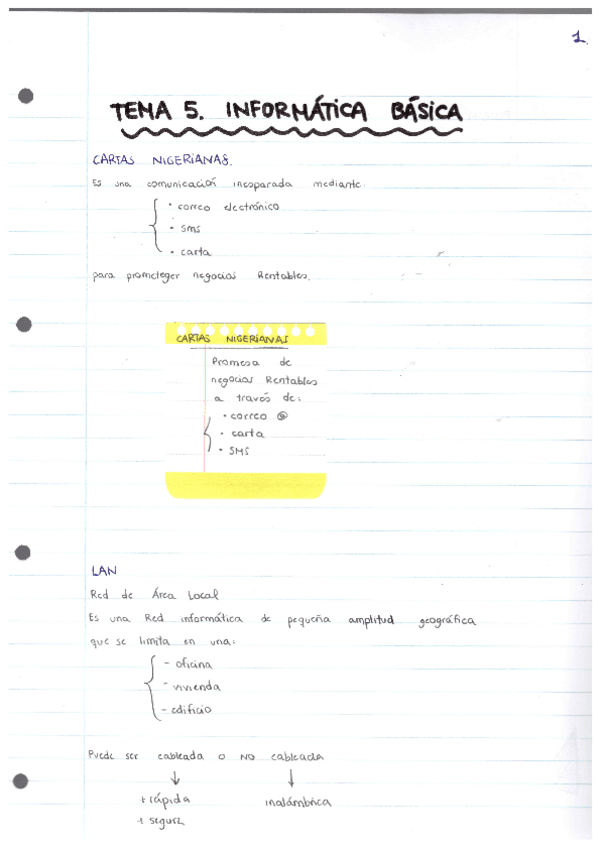 1
TEMA 5. INFORMÁTICA BÁSICA
CARTAS NIGERIANAS.
Es una comunicación inesparada mediante:
· correo electrónico
· sms
· carta
para prometeger negocios Rentables.
CARTAS NIGERIANAS
Promesa de
negocios Rentables
a través de:
· correo @
· carta
· SMS
LAN
Red de Área Local
Es una Red informática de pequeña amplitud geográfica
que se limita en una:
- oficina
- vivienda
- edificio
Puede ser cableada o NO cableada
↓ ↓
+ rápida inalámbrica
+ segura